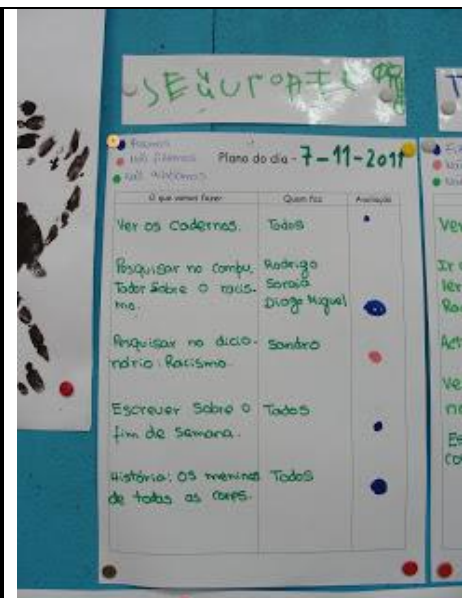 Fizemos
Não fizemos
Plano do dia - 7-11-2011
O que vamos fazer
Quem faz
Avaliação
Ver os cadernos.
Todos
Pesquisar no compu,
tador sobre o racis-
mo.
Rodrigo
Soraia
Diogo Miguel
Pesquisar no dicio-
nário: Racismo.
Sandro
Escrever sobre o
fim de semana.
Todos
História: Os meninos
de todas as cores.
Todos
Ver